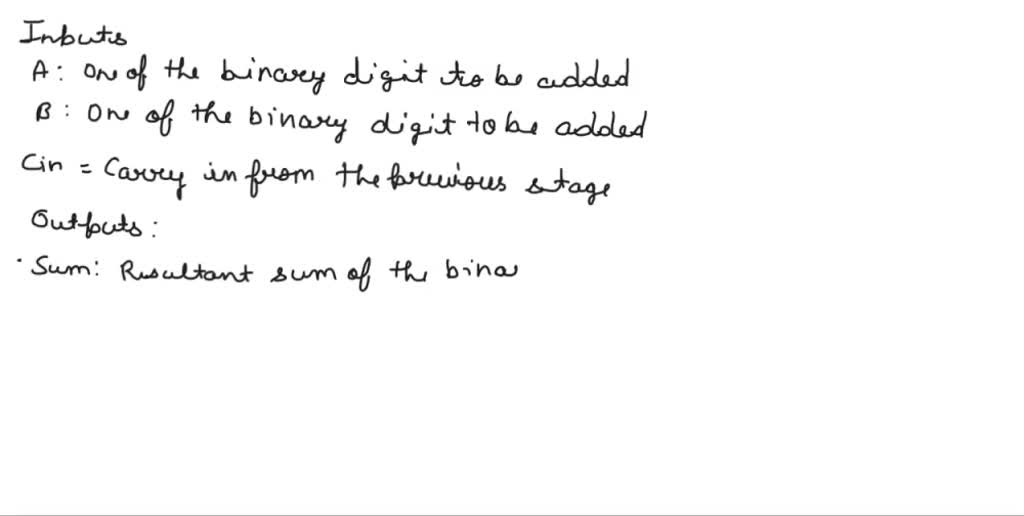 Inputs
A: One of the binary digit to be added
B: One of the binary digit to be added
Cin = Carry in from the previous stage
Outputs:
· Sum: Resultant sum of the bina